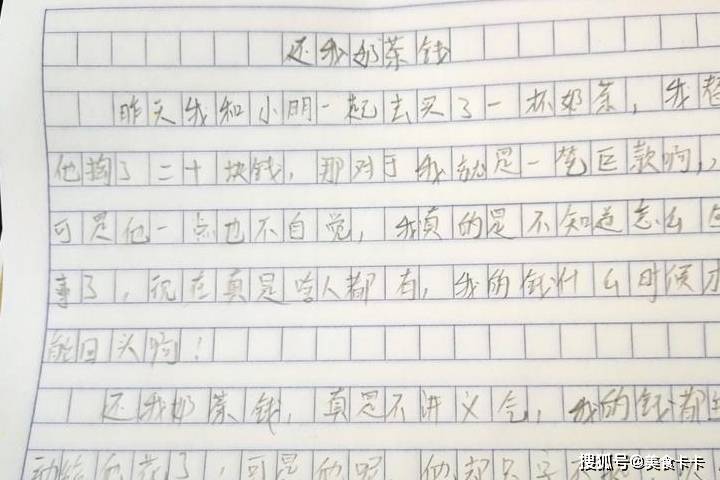 还我奶茶钱
昨天我和小明一起去买了一杯奶茶，我替
他掏了二十块钱，那对于我就是一笔巨款啊，
可是他一点也不自觉，我真的是不知道怎么回
事了，现在真是啥人都有，我的钱什么时候才
能回头啊！
还我奶茶钱，真是不讲义气，我的钱都
给他花了，可是他呢，他却只字不
搜狐号@美食卡卡